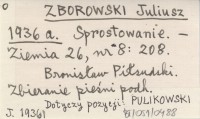 ZBOROWSKI Juliusz
1936 a. Sprostowanie. –
Ziemia 26, nr 8: 208.
Bronisław Piłsudski.
Zbieranie pieśni podh.
Dotyczy pozycji: PULIKOWSKI
J. 1936)